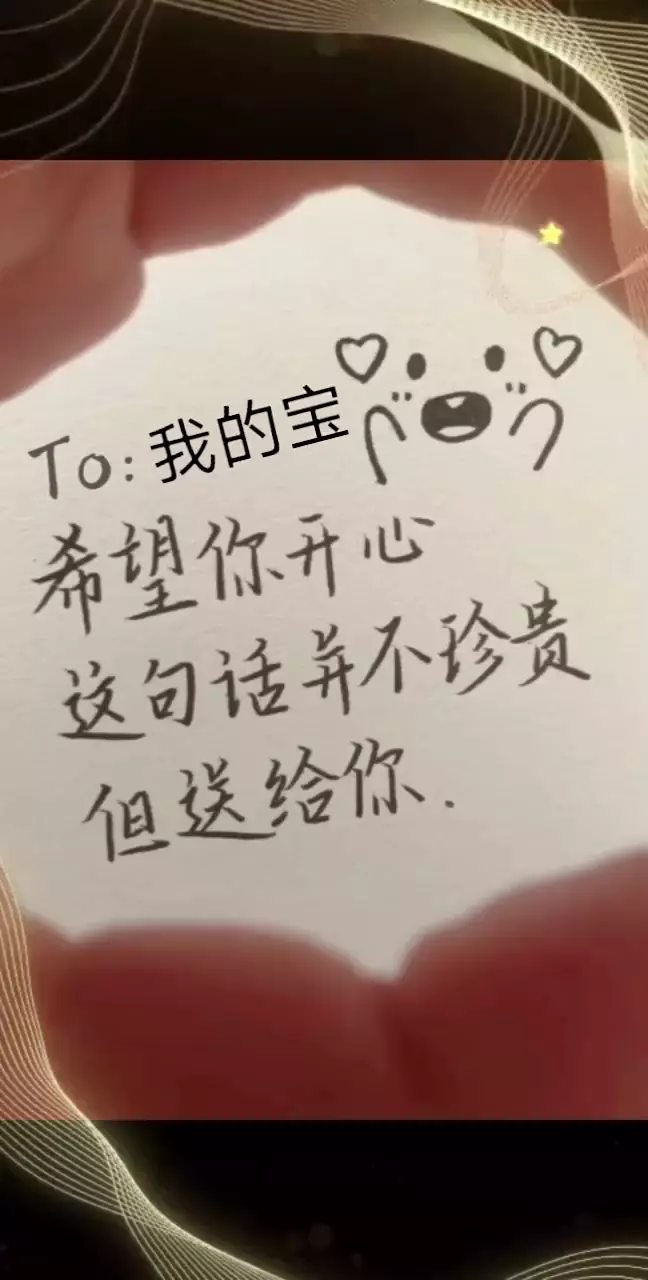 To: 我的宝
希望你开心
这句话并不珍贵
但送给你.